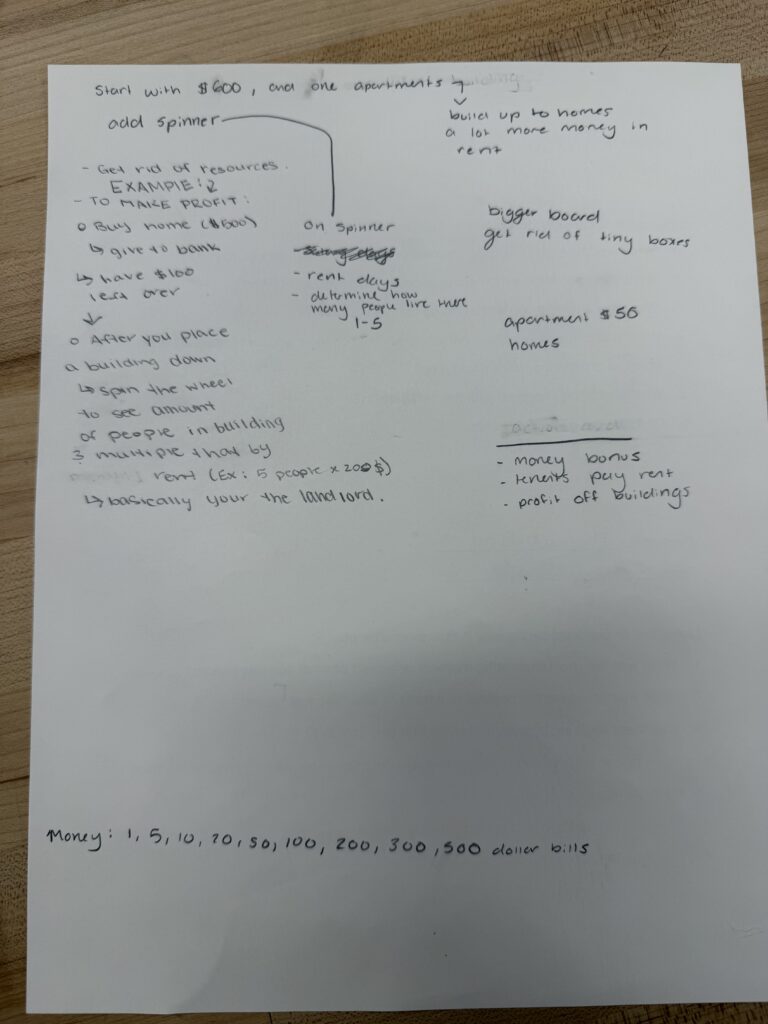 Start with $600, and one apartments
add spinner
build up to homes
a lot more money in
rent
- Get rid of resources.
EXAMPLE:
- TO MAKE PROFIT:
o Buy home ($500)
↳ give to bank
↳ have $100
left over
↓
o After you place
a building down
↳ spin the wheel
to see amount
of people in building
& multiple that by
rent (Ex: 5 people x 200$)
↳ basically your the landlord.
On spinner
- rent days
- determine how
many people live there
1-5
bigger board
get rid of tiny boxes
apartment $50
homes
- money bonus
- tenents pay rent
- profit off buildings
Money: 1, 5, 10, 20, 50, 100, 200, 300, 500 dollar bills